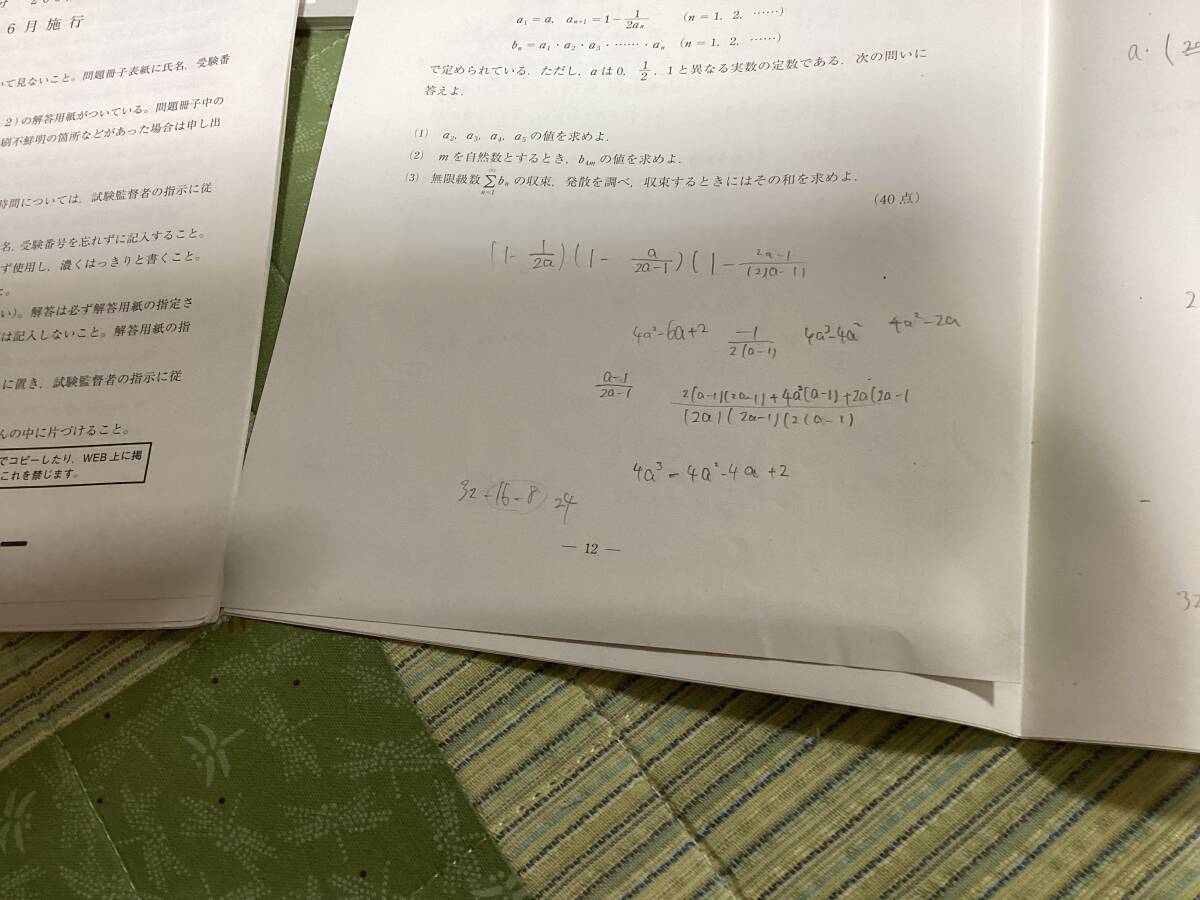 6月施行
いて見ないこと。問題冊子表紙に氏名、受験番
2)の解答用紙がついている。問題冊子中の
刷不鮮明の箇所などがあった場合は申し出
時間については、試験監督者の指示に従
名、受験番号を忘れずに記入すること。
ず使用し、濃くはっきりと書くこと。
と。
い)。解答は必ず解答用紙の指定さ
は記入しないこと。解答用紙の指
に置き、試験監督者の指示に従
んの中に片づけること。
でコピーしたり、WEB上に掲
これを禁じます。
a₁=a, aₙ₊₁=1-1/(2aₙ) (n=1, 2, ……)
bₙ=a₁・a₂・a₃・……・aₙ (n=1, 2, ……)
で定められている. ただし, aは0, 1/2, 1と異なる実数の定数である. 次の問いに
答えよ.
(1) a₂, a₃, a₄, a₅の値を求めよ.
(2) mを自然数とするとき, b₄ₘの値を求めよ.
(3) 無限級数 ∞Σn=1 bₙの収束, 発散を調べ, 収束するときにはその和を求めよ.
(40点)
(1- 1/2a)(1- a/(2a-1))(1- (2a-1)/(2)(a-1)
4a²-6a+2 -1/2(a-1) 4a³-4a² 4a²-2a
(a-1)/(2a-1) 2(a-1)(2a-1)+4a²(a-1)+2a(2a-1/(2a)(2a-1)(2(a-1)
4a³-4a²-4a+2
32-16-8 24
— 12 —
a・(
2
-
32